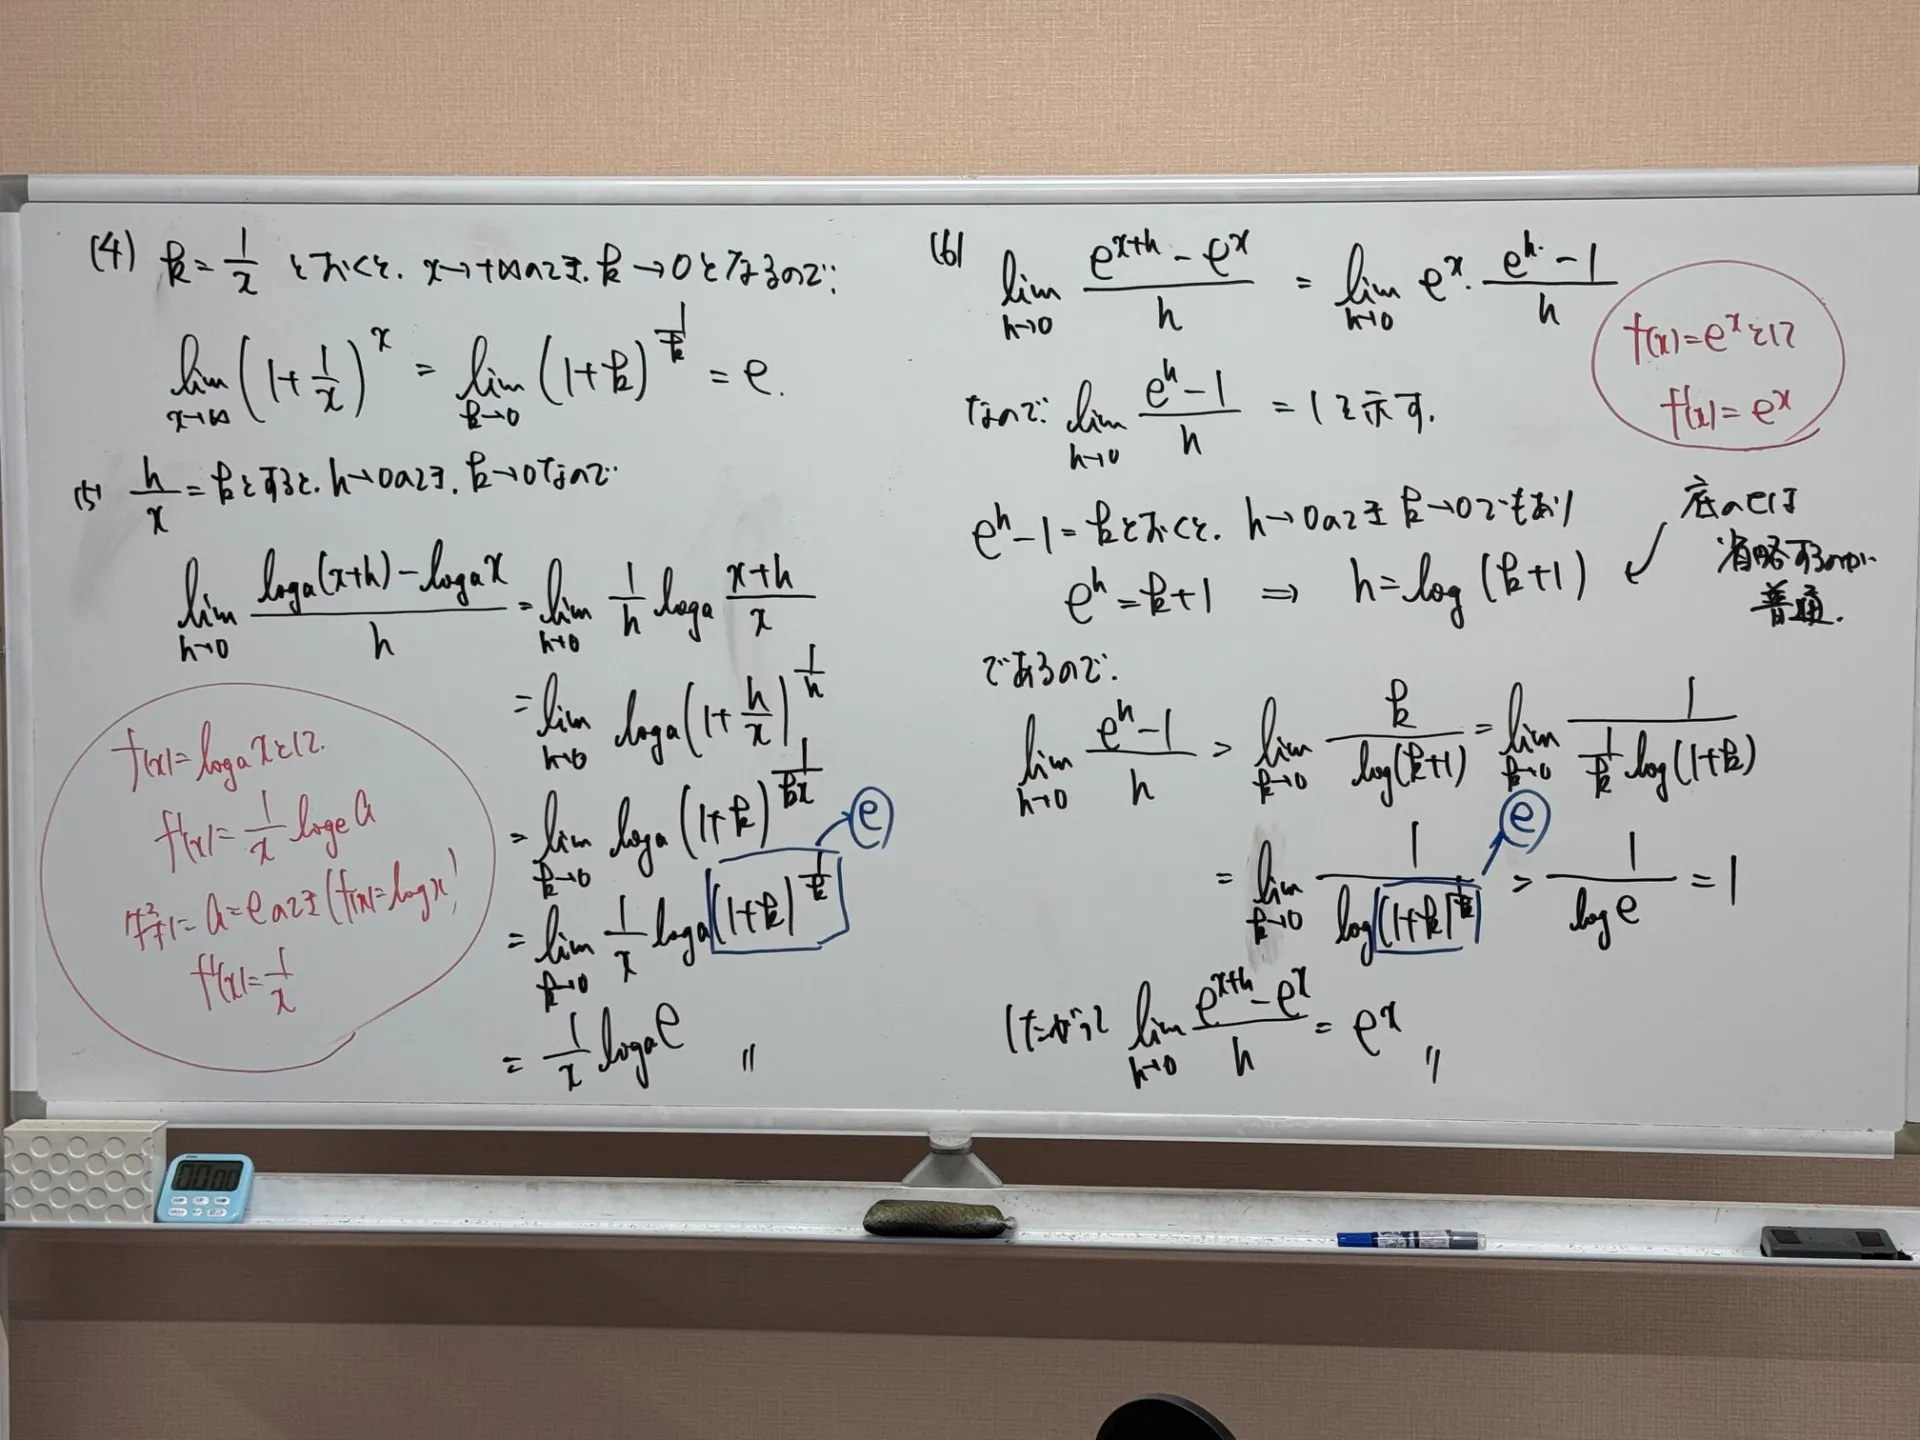 (4) k = 1/x とおくと、x→+∞のとき、k→0となるので、
lim_{x→∞} (1+1/x)^x = lim_{k→0} (1+k)^{1/k} = e.
(5) h/x = kとすると、h→0のとき、k→0なので
lim_{h→0} (log_a(x+h) - log_a x)/h = lim_{h→0} 1/h log_a (x+h)/x
= lim_{h→0} log_a (1+h/x)^{1/h}
= lim_{k→0} log_a (1+k)^{1/kx}
e
= lim_{k→0} 1/x log_a (1+k)^{1/k}
= 1/x log_a e 〃
f(x) = log_a x として
f'(x) = 1/x log_e a
特に a=e のとき (f(x)=log x)
f'(x) = 1/x
(6) lim_{h→0} (e^{x+h} - e^x)/h = lim_{h→0} e^x・(e^h - 1)/h
なので lim_{h→0} (e^h - 1)/h = 1を示す.
f(x) = e^x として
f'(x) = e^x
e^h - 1 = kとおくと、h→0のとき k→0であり
e^h = k+1 ⇒ h = log(k+1)
底のeは
省略するのが
普通.
であるので、
lim_{h→0} (e^h - 1)/h = lim_{k→0} k/log(k+1) = lim_{k→0} 1/(1/k log(1+k))
e
= lim_{k→0} 1/log(1+k)^{1/k} = 1/log e = 1
したがって lim_{h→0} (e^{x+h} - e^x)/h = e^x 〃
00:00